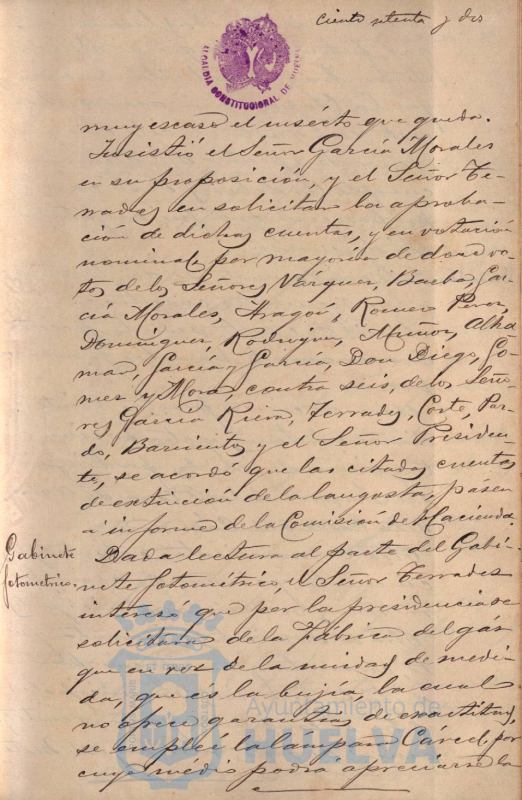 Ciento setenta y dos
ALCALDÍA CONSTITUCIONAL DE HUELVA
muy escaso el insecto que queda.
Insistió el Señor García Morales
en su proposición, y el Señor Te-
rrades en solicitar la aproba-
ción de dichas cuentas, y en votación
nominal por mayoría de doce vo-
tos de los Señores Vázquez, Barba, Gar-
cía Morales, Aragón, Romero Pérez,
Domínguez, Rodríguez, Muñoz, Alka
mar, García y García, Don Diego, Gó-
mez y Mora, contra seis, de los Seño-
res García Riera, Terrades, Corte, Par-
do, Barrientos y el Señor Presiden-
te, se acordó que las citadas cuentas
de extinción de la langosta, pasen
á informe de la Comisión de Hacienda.
Gabinete
fotometrico.
Dada lectura al parte del Gabi-
nete fotométrico, el Señor Terrades
intereso que por la presidencia se
solicitara de la Fábrica del gás
que en vez de la unidad de medi-
da, que es la bujía, la cual
no ofrece garantías de exactitud,
se emplee la lampara Cárcel, por
cuyo médio podrá apreciarse la
Ayuntamiento de
HUELVA